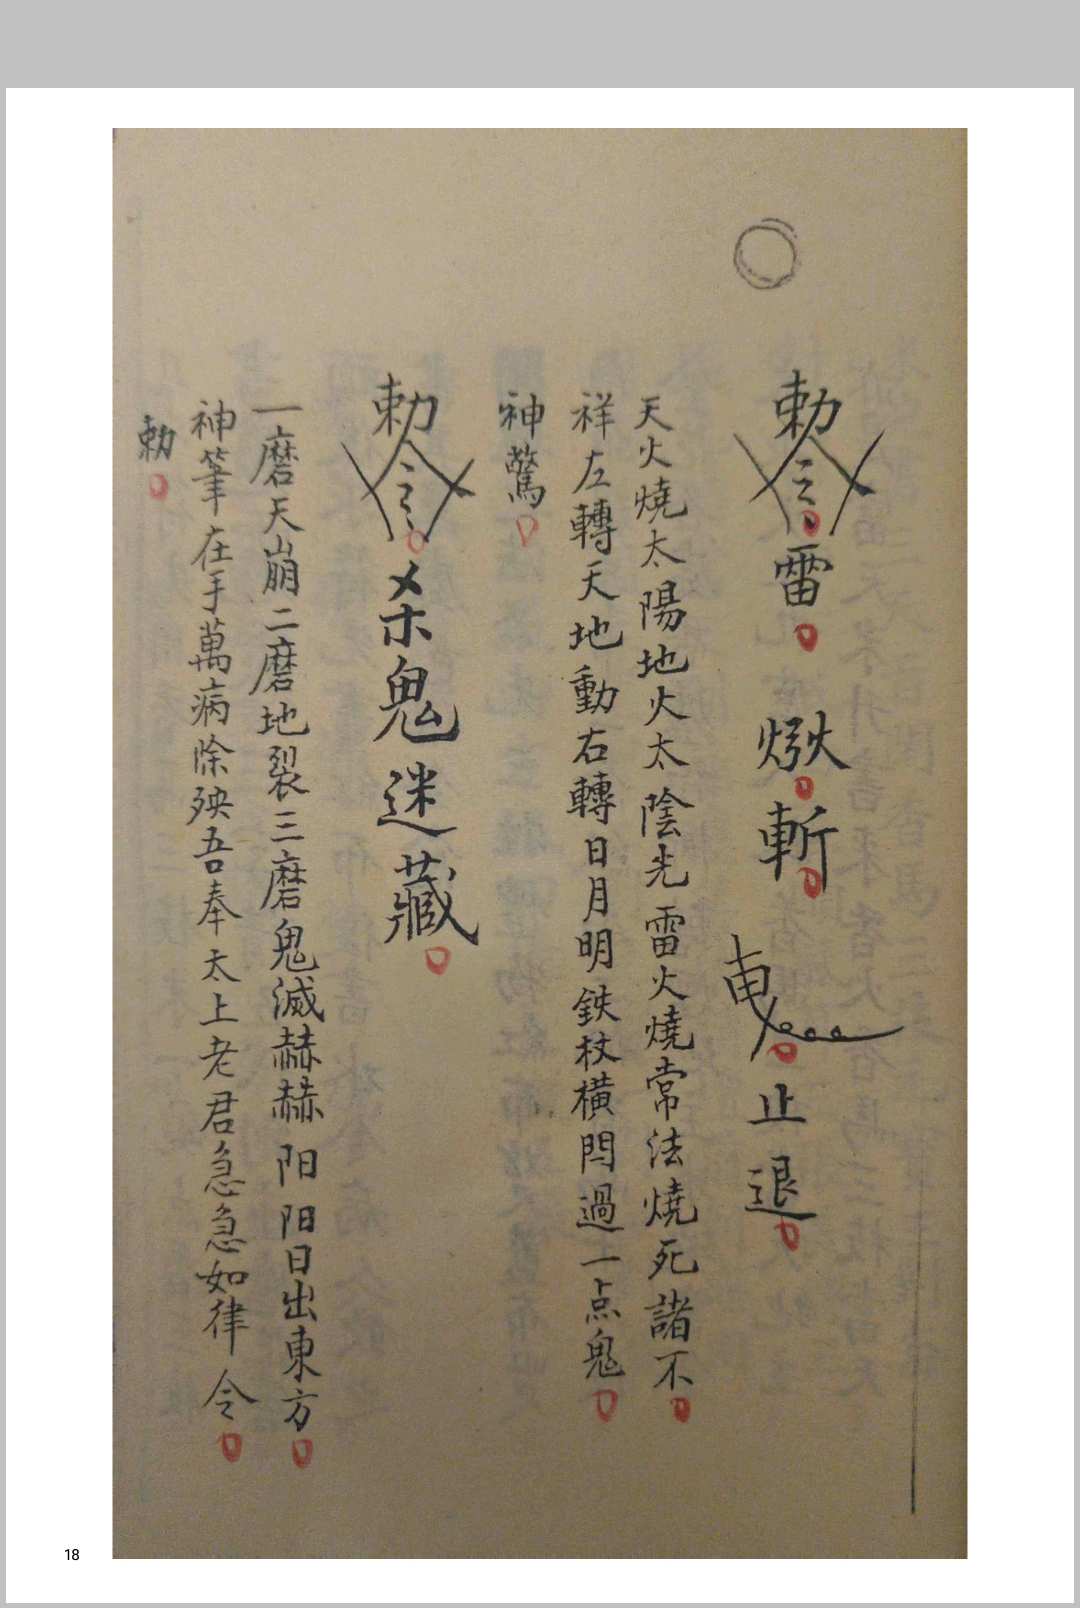 勅令雷 斬 止退
天火燒太陽地火太陰先雷火燒常法燒死諸不
祥左轉天地動右轉日月明鉄杖橫閂過一点鬼
神驚
勅令杀鬼迷藏
一磨天崩二磨地裂三磨鬼滅赫赫阳阳日出東方
神筆在手萬病除殃吾奉太上老君急急如律令
勅
18